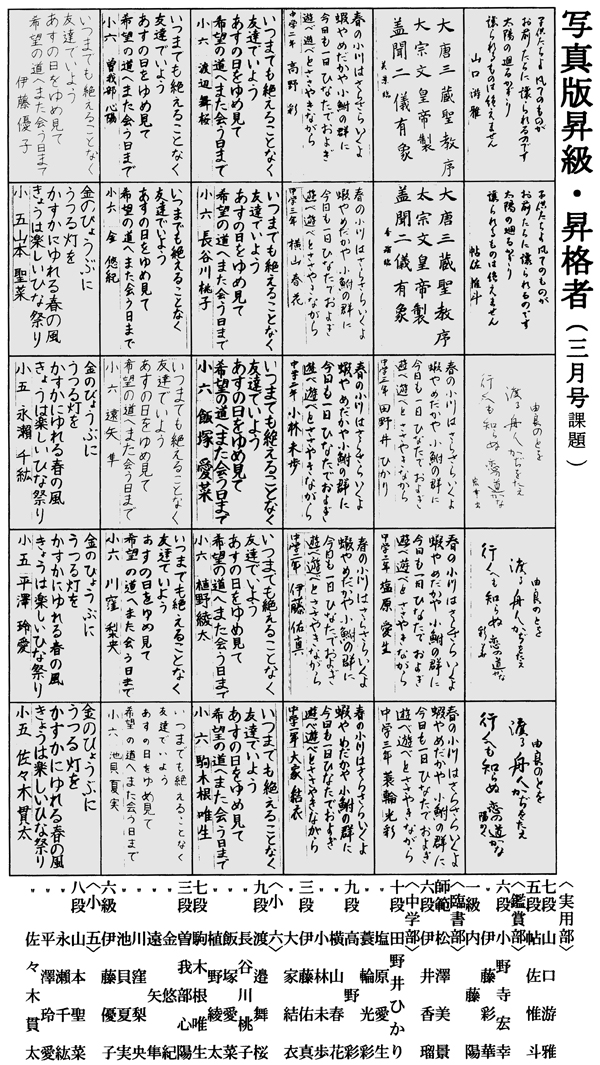 写真版昇級・昇格者（三月号課題）
子供たちよ 凡てのものが
お前たちに譲られるのです
太陽の廻るかぎり
譲られるものは絶えません
山口游雅
大唐三蔵聖教序
太宗文皇帝製
蓋聞二儀有象
春の小川はさらさらいくよ
蝦やめだかや小鮒の群に
今日も一日ひなたでおよぎ
遊べ遊べとささやきながら
中学二年 高野 彩
いつまでも絶えることなく
友達でいよう
あすの日をゆめ見て
希望の道へまた会う日まで
小六 渡辺舞桜
いつまでも絶えることなく
友達でいよう
あすの日をゆめ見て
希望の道へまた会う日まで
小六 曽我部心陽
いつまでも絶えることなく
友達でいよう
あすの日をゆめ見て
希望の道へまた会う日まで
伊藤優子
子供たちよ 凡てのものが
お前たちに譲られるのです
太陽の廻るかぎり
譲られるものは絶えません
帖佐惟斗
大唐三蔵聖教序
太宗文皇帝製
蓋聞二儀有象
春の小川はさらさらいくよ
蝦やめだかや小鮒の群に
今日も一日ひなたでおよぎ
遊べ遊べとささやきながら
中学三年 横山春花
いつまでも絶えることなく
友達でいよう
あすの日をゆめ見て
希望の道へまた会う日まで
小六 長谷川桃子
いつまでも絶えることなく
友達でいよう
あすの日をゆめ見て
希望の道へまた会う日まで
小六 金 悠紀
金のびょうぶに
うつる灯を
かすかにゆれる春の風
きょうは楽しいひな祭り
小五 山本聖菜
由良のとを
渡る舟人かぢをたえ
行くへも知らぬ恋の道かな
春の小川はさらさらいくよ
蝦やめだかや小鮒の群に
今日も一日ひなたでおよぎ
遊べ遊べとささやきながら
中学三年 田野井ひかり
春の小川はさらさらいくよ
蝦やめだかや小鮒の群に
今日も一日ひなたでおよぎ
遊べ遊べとささやきながら
中学二年 小林未歩
いつまでも絶えることなく
友達でいよう
あすの日をゆめ見て
希望の道へまた会う日まで
小六 飯塚愛菜
いつまでも絶えることなく
友達でいよう
あすの日をゆめ見て
希望の道へまた会う日まで
小六 遠矢 隼
金のびょうぶに
うつる灯を
かすかにゆれる春の風
きょうは楽しいひな祭り
小五 永瀬千紘
由良のとを
渡る舟人かぢをたえ
行くへも知らぬ恋の道かな
春の小川はさらさらいくよ
蝦やめだかや小鮒の群に
今日も一日ひなたでおよぎ
遊べ遊べとささやきながら
中学三年 塩原愛生
春の小川はさらさらいくよ
蝦やめだかや小鮒の群に
今日も一日ひなたでおよぎ
遊べ遊べとささやきながら
中学二年 伊藤佑真
いつまでも絶えることなく
友達でいよう
あすの日をゆめ見て
希望の道へまた会う日まで
小六 植野綾太
いつまでも絶えることなく
友達でいよう
あすの日をゆめ見て
希望の道へまた会う日まで
小六 川窪梨央
金のびょうぶに
うつる灯を
かすかにゆれる春の風
きょうは楽しいひな祭り
小五 平澤玲愛
由良のとを
渡る舟人かぢをたえ
行くへも知らぬ恋の道かな
春の小川はさらさらいくよ
蝦やめだかや小鮒の群に
今日も一日ひなたでおよぎ
遊べ遊べとささやきながら
中学三年 蓑輪光彩
春の小川はさらさらいくよ
蝦やめだかや小鮒の群に
今日も一日ひなたでおよぎ
遊べ遊べとささやきながら
中学一年 大家結衣
いつまでも絶えることなく
友達でいよう
あすの日をゆめ見て
希望の道へまた会う日まで
小六 駒木根唯生
いつまでも絶えることなく
友達でいよう
あすの日をゆめ見て
希望の道へまた会う日まで
小六 池貝夏実
金のびょうぶに
うつる灯を
かすかにゆれる春の風
きょうは楽しいひな祭り
小五 佐々木貫太
〈実用部〉
七段 山口游雅
五段 帖佐惟斗
〈鑑賞部〉
七段 小野寺宏幸
〃 伊藤彩華
一級 内藤陽
〈臨書部〉
師範 松澤美景
六段 伊井香瑠
〈中学部〉
十段 田野井ひかり
〃 塩原愛生
〃 蓑輪光彩
九段 高野彩
〃 横山春花
〃 小林未歩
三段 伊藤佑真
〃 大家結衣
〈小六〉
九段 渡邉舞桜
〃 長谷川桃子
〃 飯塚愛菜
〃 植野綾太
七段 駒木根唯生
三段 曽我部心陽
〃 金悠紀
〃 遠矢隼
〃 川窪梨央
〃 池貝夏実
六級 伊藤優子
〈小五〉
八段 山本聖菜
〃 永瀬千紘
〃 平澤玲愛
〃 佐々木貫太